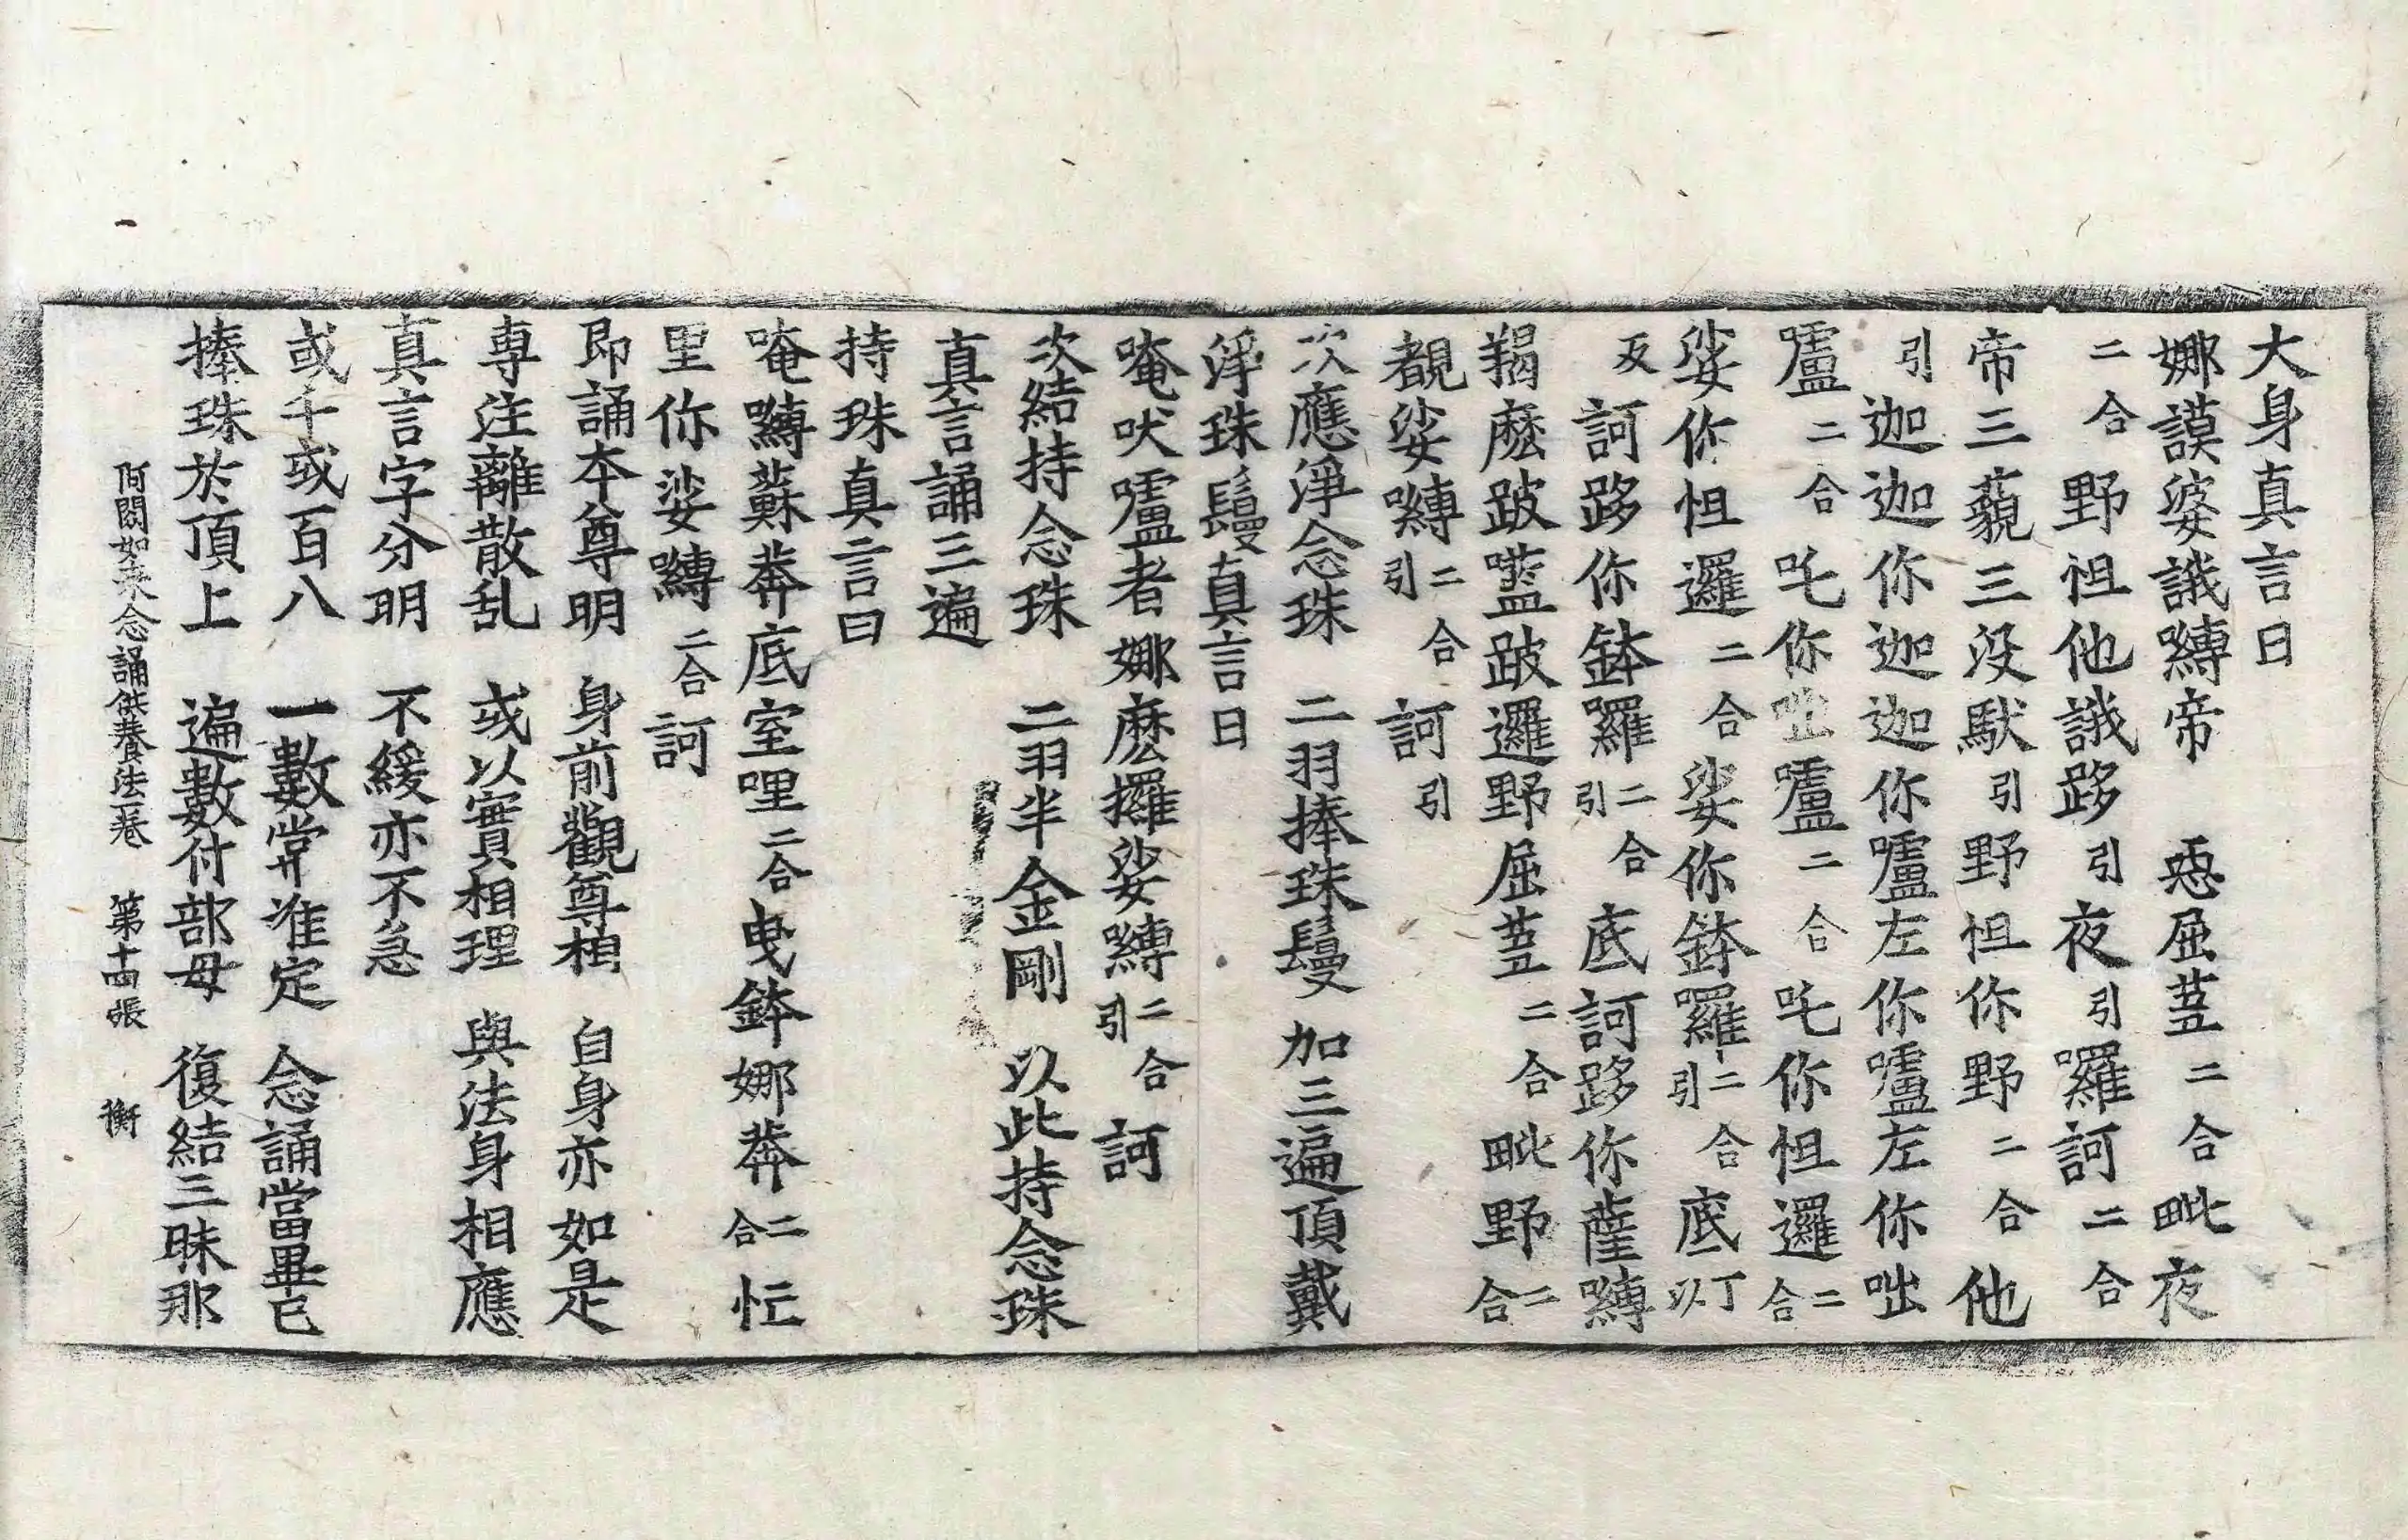 大身真言曰
娜謨婆誐嚩帝 惡屈蒭二合毗夜
二合野怛他誐跢引夜引囉訶二合
帝三藐三沒馱引野怛你野二合他
引迦迦你迦迦你嚧左你嚧左你咄
嚧二合吒你咄嚧二合吒你怛邏二合
娑你怛邏二合娑你鉢羅二合引底丁以
反訶跢你鉢羅二合引底訶跢你薩嚩
羯麽跛囕跛邏野屈蒭二合毗野二合
覩娑嚩二合引訶引
次應淨念珠 二羽捧珠鬘 加三遍頂戴
淨珠鬘真言曰
唵吠嚧者娜麽攞娑嚩二合引訶
次結持念珠 二羽半金剛 以此持念珠
真言誦三遍
持珠真言曰
唵嚩蘇莾底室哩二合曳鉢娜莾二合忙
里你娑嚩二合訶
即誦本尊明 身前觀尊相 自身亦如是
專注離散乱 或以實相理 與法身相應
真言字分明 不緩亦不急
或千或百八 一數常准定 念誦當畢已
捧珠於頂上 遍數付部母 復結三昧耶
阿閦如来念誦供養法一卷 第十四張 衡